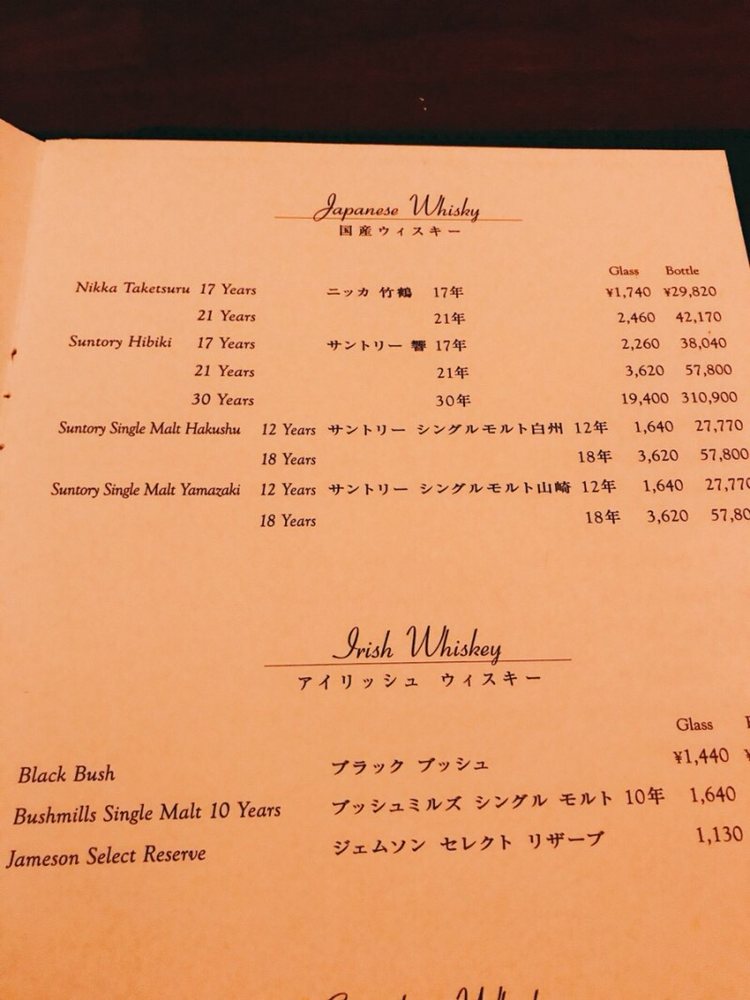 Japanese Whisky
国産ウィスキー
Glass Bottle
Nikka Taketsuru 17 Years ニッカ 竹鶴 17年 ¥1,740 ¥29,820
21 Years 21年 2,460 42,170
Suntory Hibiki 17 Years サントリー 響 17年 2,260 38,040
21 Years 21年 3,620 57,800
30 Years 30年 19,400 310,900
Suntory Single Malt Hakushu 12 Years サントリー シングルモルト白州 12年 1,640 27,770
18 Years 18年 3,620 57,800
Suntory Single Malt Yamazaki 12 Years サントリー シングルモルト山崎 12年 1,640 27,770
18 Years 18年 3,620 57,80
Irish Whiskey
アイリッシュ ウィスキー
Glass
Black Bush ブラック ブッシュ ¥1,440 ¥
Bushmills Single Malt 10 Years ブッシュミルズ シングル モルト 10年 1,640
Jameson Select Reserve ジェムソン セレクト リザーブ 1,130